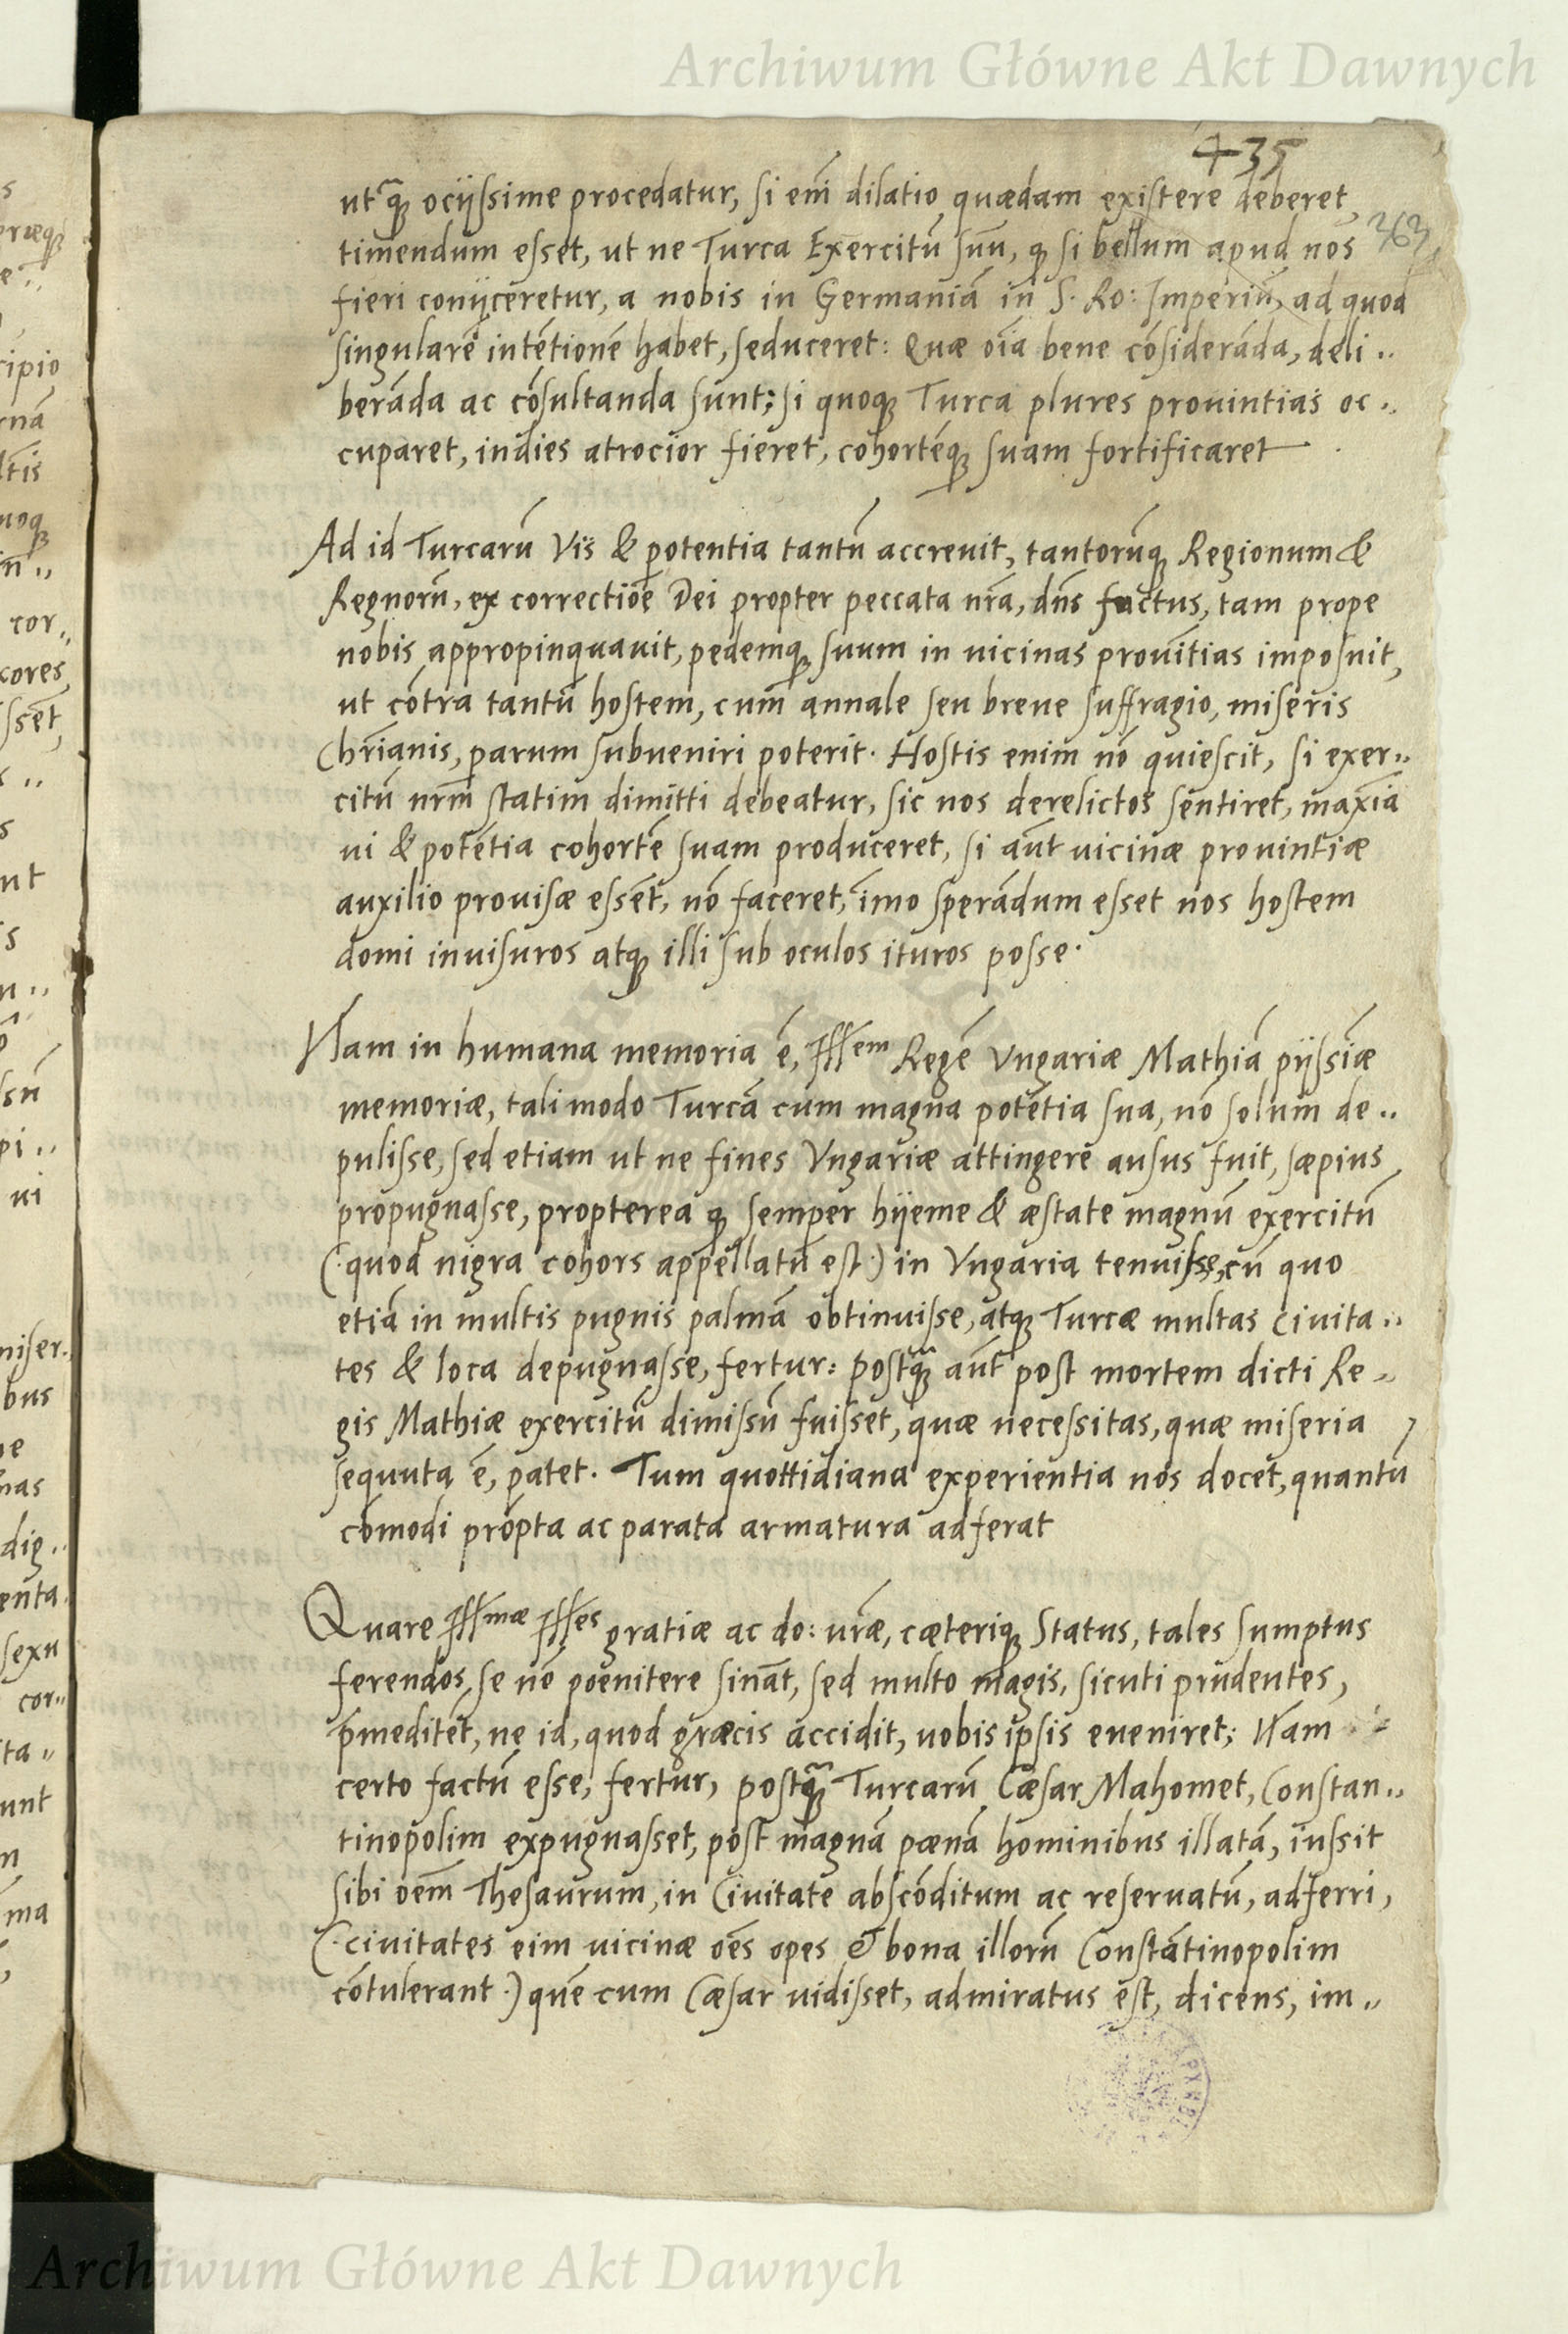 Archiwum Główne Akt Dawnych
435
utq̃ꝫ ociissime procedatur, si em̃ dilatio quædam existere deberet,
363
timendum esset, ut ne Turca Exercitũ suũ, qꝫ si bellum apud nos
fieri conijceretur, a nobis in Germaniã in S. Ro: Imperiũ, ad quod
singularẽ intẽtionẽ habet, seduceret: Quæ oĩa bene cõsiderãda, deli..
berãda ac cõsultanda sunt; si quoqꝫ Turca plures prouintias oc..
cuparet, indies atrocior fieret, cohortẽqꝫ suam fortificaret
Ad id Turcarũ Vis & potentia tantũ accreuit, tantorũqꝫ Regionum &
Regnorũ, ex correctiõe Dei propter peccata nr̃a, dñs factus, tam prope
nobis appropinquauit, pedemqꝫ suum in uicinas prouĩtias imposuit,
ut cõtra tantũ hostem, cum annale seu breue suffragio, miseris
Chr̃ianis, parum subueniri poterit. Hostis enim nõ quiescit, si exer..
citũ nr̃m statim dimitti debeatur, sic nos derelictos sentiret, maxĩa
ui & potẽtia cohortẽ suam produceret, si aũt uicinæ prouintiæ
auxilio prouisæ essẽt, nõ faceret, imo sperãdum esset nos hostem
domi inuisuros atqꝫ illi sub oculos ituros posse.
Nam in humana memoria ẽ, Illem Regẽ Vngariæ Mathiã pijssĩæ
memoriæ, tali modo Turcã cum magna potẽtia sua, nõ solum de..
pulisse, sed etiam ut ne fines Vngariæ attingere ausus fuit, sæpius
propugnasse, propterea qꝫ semper hijeme & æstate magnũ exercitũ
(.quod nigra cohors appellatũ est.) in Vngaria tenuisse, cũ quo
etiã in multis pugnis palmã obtinuisse, atqꝫ Turcæ multas ciuita..
tes & loca depugnasse, fertur: postq̃ꝫ aũt post mortem dicti Re..
gis Mathiæ exercitũ dimissũ fuisset, quæ necessitas, quæ miseria
sequuta ẽ, patet. Tum quottidiana experientia nos docet, quantũ
cõmodi prõpta ac parata armatura adferat
Quare Illmæ Illes gratiæ ac do: ur̃æ, cæteriqꝫ Status, tales sumptus
ferendos, se nõ poenitere sinãt, sed multo magis, sicuti prudentes,
p̃meditẽt, ne id, quod græcis accidit, uobis ipsis eueniret; Nam
certo factũ esse, fertur, postq̃ꝫ Turcarũ Cæsar Mahomet, Constan..
tinopolim expugnasset, post magnã pænã hominibus illatã, iussit
sibi oẽm Thesaurum, in Ciuitate abscõditum ac reseruatũ, adferri,
(.ciuitates eim uicinæ oẽs opes & bona illorũ Constãtinopolim
cõtulerant.) quẽ cum Cæsar uidisset, admiratus est, dicens, im..
Archiwum Główne Akt Dawnych